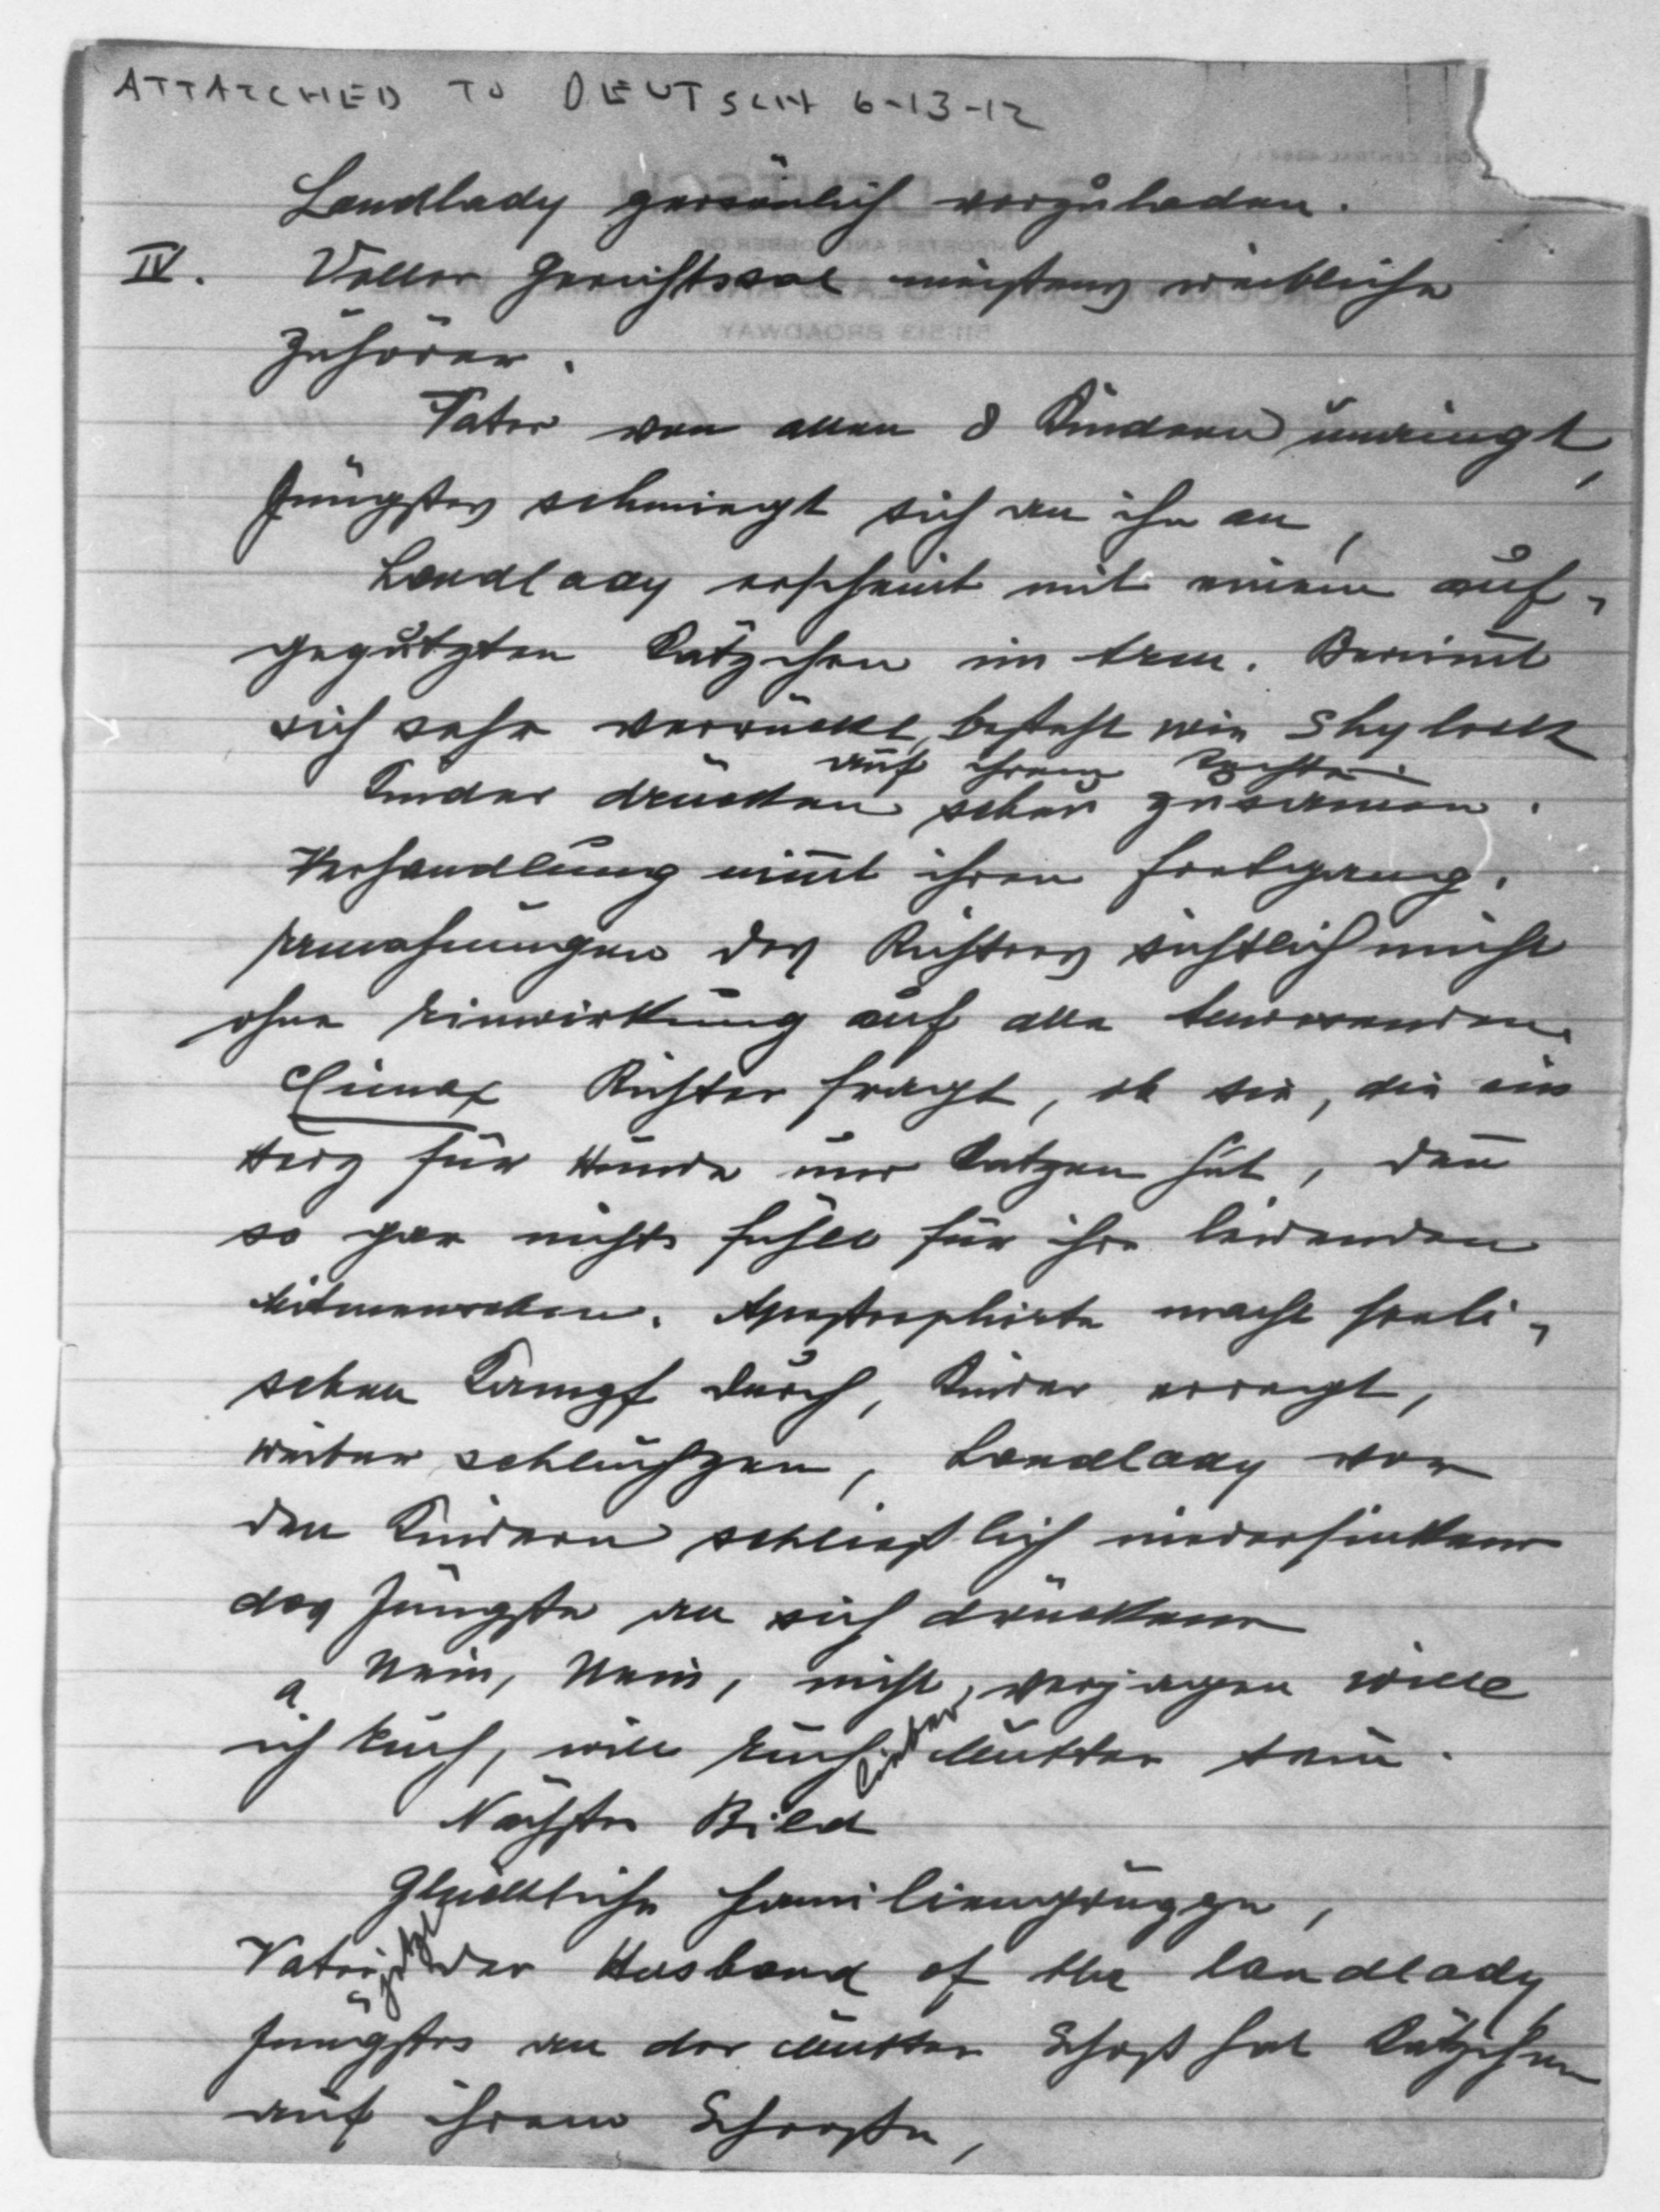 ATTATCHED TO DEUTSCH 6-13-12
Landlady persönlich vorzuladen.
IV. Voller Gerichtssal meistens weibliche
Zuhörer.
Vater von allen 8 Kindern umringt,
Jüngstes schmiegt sich an ihn an,
Landlady erscheint mit einem auf-
geputzten Kätzchen im Arm. Benimmt
sich sehr verrückt, besteht wie Shylock
auf ihrem Rechte.
Kinder drücken scheu zusammen.
Verhandlung nimmt ihren Fortgang.
Ermahnungen des Richters sichtlich nicht
ohne Einwirkung auf alle Anwesenden.
Climax Richter fragt, ob sie, die ein
Herz für Hunde und Katzen hat, denn
so gar nichts fühlt für ihre leidenden
Mitmenschen. Apostrophirte macht seeli-
schen Kampf durch, Kinder erregt,
Weiber schluchzen, Landlady vor
den Kindern schließlich niedersinkend
das Jüngste an sich drückend
Nein, Nein, nicht verjagen will
ich Euch, will Euch lieber Mutter sein.
Nächstes Bild
Glückliche Familiengruppe,
Vater jetzt der Husband of the landlady
Jüngstes an der Mutter Schoß hat Kätzchen
auf ihrem Schooße,